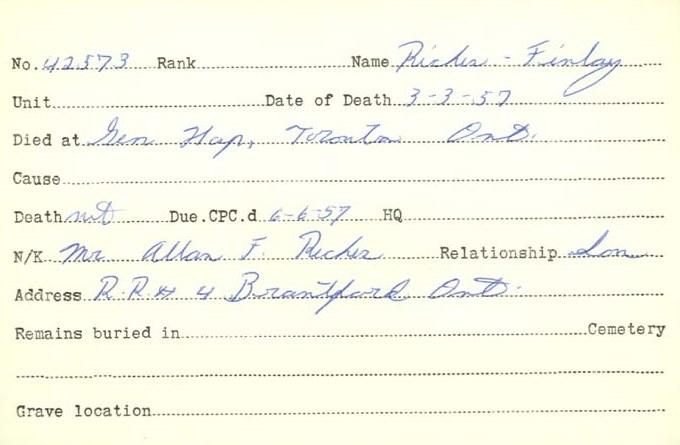 No. 42573 Rank Name Richer - Finlay
Unit Date of Death 3-3-57
Died at Gen Hosp, Toronto Ont.
Cause
Death not Due.CPC.d 6-6-57 HQ
N/K Mr Allan F. Richer Relationship Son
Address R.R # 4 Brantford Ont.
Remains buried in Cemetery
Grave location